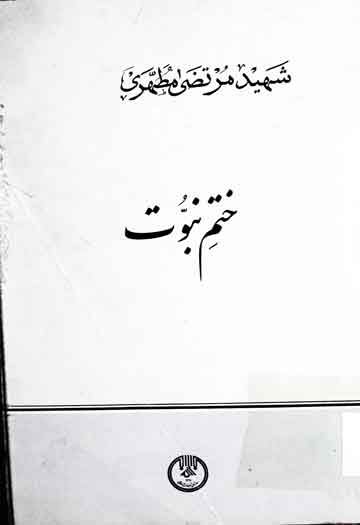 شہید مُرتضیٰ مُطہّری
ختمِ نبوّت